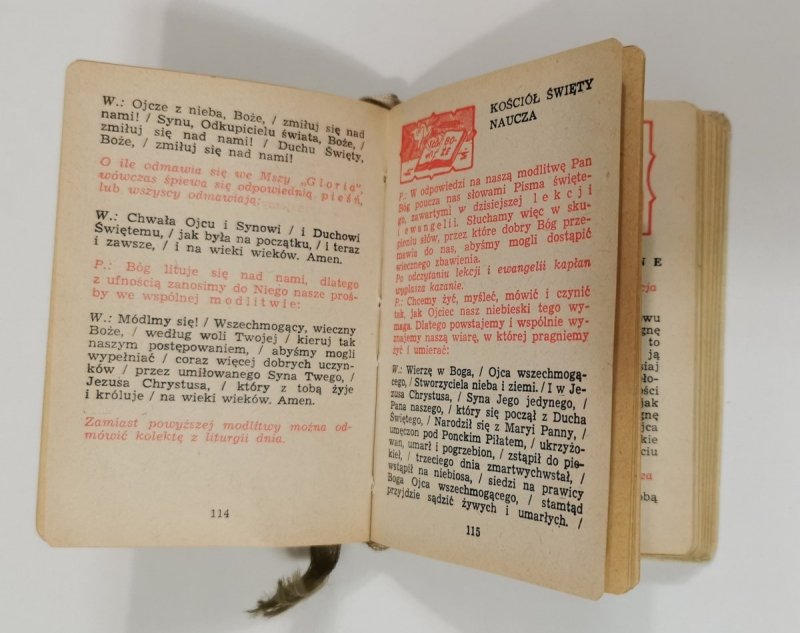 W.: Ojcze z nieba, Boże, / zmiłuj się nad
nami! / Synu, Odkupicielu świata, Boże, /
zmiłuj się nad nami! / Duchu Święty,
Boże, / zmiłuj się nad nami!
O ile odmawia się we Mszy „Gloria”,
wówczas śpiewa się odpowiednią pieśń,
lub wszyscy odmawiają:
W.: Chwała Ojcu i Synowi / i Duchowi
Świętemu, / jak była na początku, / i teraz
i zawsze, / i na wieki wieków. Amen.
P.: Bóg lituje się nad nami, dlatego
z ufnością zanosimy do Niego nasze proś-
by we wspólnej modlitwie:
W.: Módlmy się! / Wszechmogący, wieczny
Boże, / według woli Twojej / kieruj tak
naszym postępowaniem, / abyśmy mogli
wypełniać / coraz więcej dobrych uczyn-
ków / przez umiłowanego Syna Twego, /
Jezusa Chrystusa, / który z tobą żyje
i króluje / na wieki wieków. Amen.
Zamiast powyższej modlitwy można od-
mówić kolektę z liturgii dnia.
114
KOŚCIÓŁ ŚWIĘTY
NAUCZA
P.: W odpowiedzi na naszą modlitwę Pan
Bóg poucza nas słowami Pisma święte-
go, zawartymi w dzisiejszej lekcji
i ewangelii. Słuchamy więc w sku-
pieniu słów, przez które dobry Bóg prze-
mawia do nas, abyśmy mogli dostąpić
wiecznego zbawienia.
Po odczytaniu lekcji i ewangelii kapłan
wygłasza kazanie.
P.: Chcemy żyć, myśleć, mówić i czynić
tak, jak Ojciec nasz niebieski tego wy-
maga. Dlatego powstajemy i wspólnie wy-
znajemy naszą wiarę, w której pragniemy
żyć i umierać:
W.: Wierzę w Boga, / Ojca wszechmogą-
cego, / Stworzyciela nieba i ziemi. / I w Je-
zusa Chrystusa, / Syna Jego jedynego, /
Pana naszego, / który się począł z Ducha
Świętego, / Narodził się z Maryi Panny, /
umęczon pod Ponckim Piłatem, / ukrzyżo-
wan, umarł i pogrzebion, / zstąpił do pie-
kieł, / trzeciego dnia zmartwychwstał, /
wstąpił na niebiosa, / siedzi na prawicy
Boga Ojca wszechmogącego, / stamtąd
przyjdzie sądzić żywych i umarłych. /
115
N E
cja
wu
gnę
to
ją
siaj
eło-
ości
jak
gnę
jca
kie
ciu
za
obą